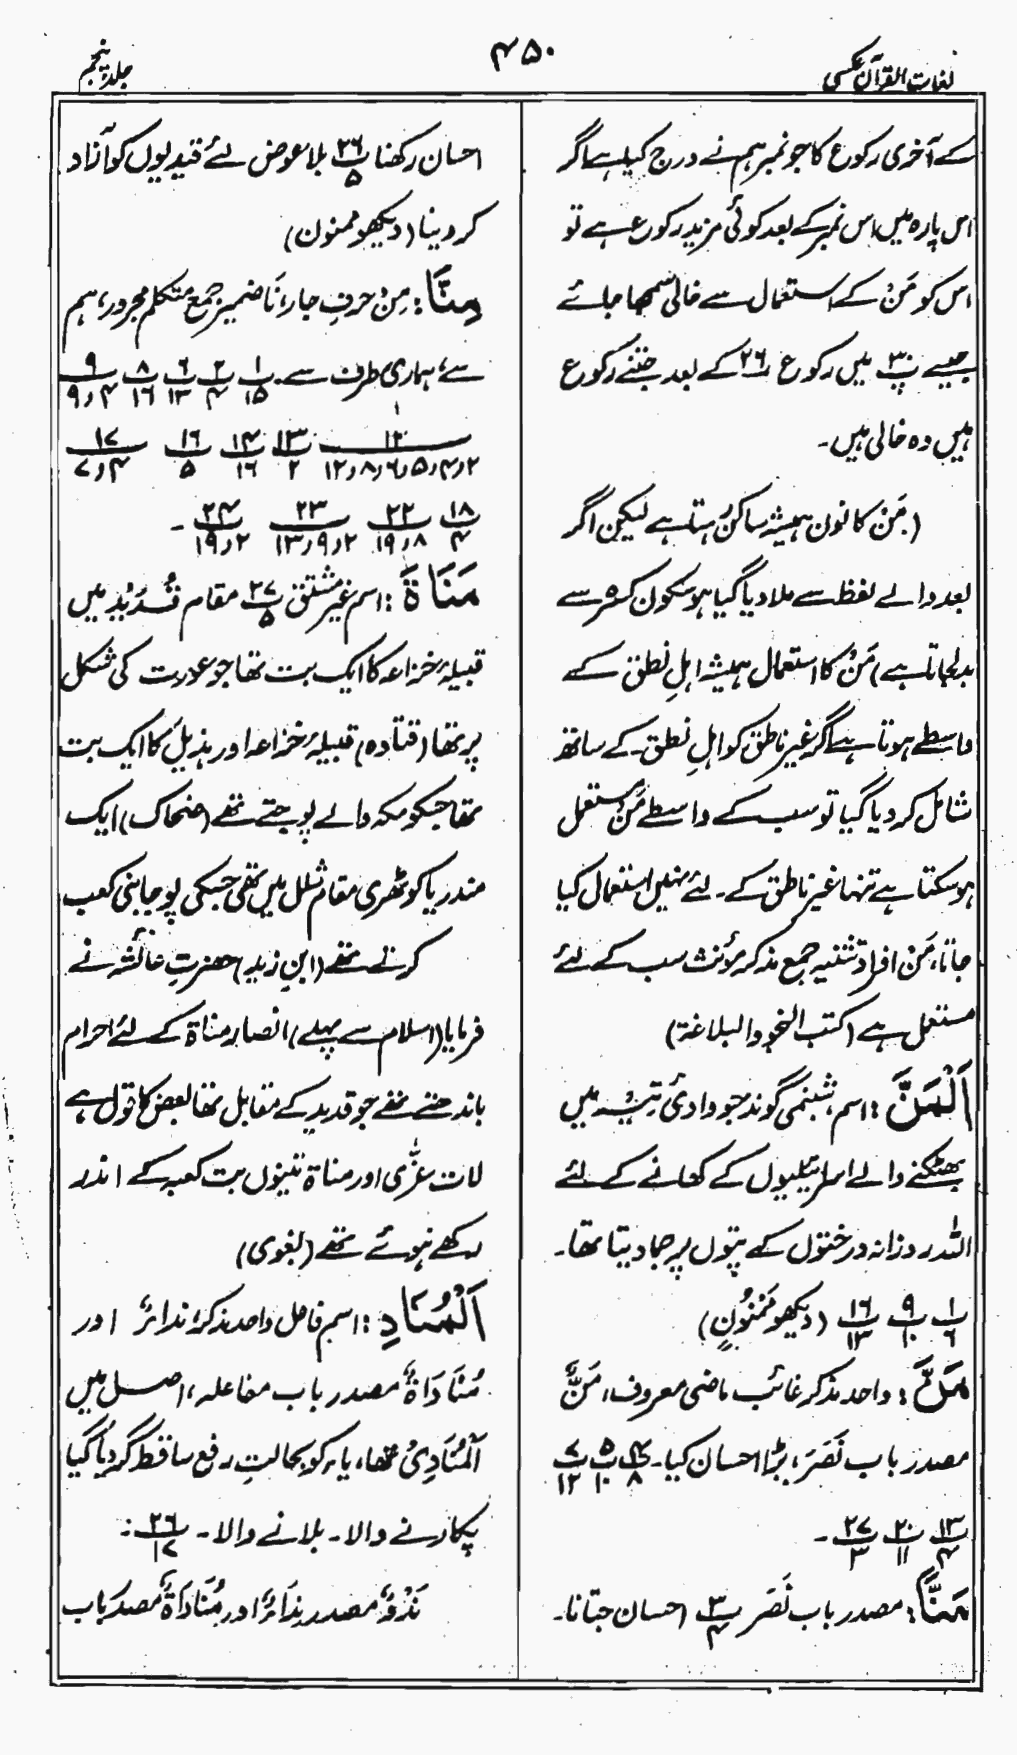 لغات القرآن عکسی
۴۵۰
جلد پنجم
کے آخری رکوع کا جو نمبر ہم نے درج کیا ہے اگر
اس پارہ میں اس نمبر کے بعد کوئی مزید رکوع ہے تو
اس کو مَنْ کے استعمال سے خالی سمجھا جائے
جیسے پ۳۰ میں رکوع ۲۶ کے بعد جتنے رکوع
ہیں وہ خالی ہیں۔
(مَنْ کا نون ہمیشہ ساکن رہتا ہے لیکن اگر
بعد والے لفظ سے ملا دیا گیا ہو سکون کسرہ سے
بدل جاتا ہے) مَنْ کا استعمال ہمیشہ اہلِ نطق کے
واسطے ہوتا ہے اگر غیر ناطق کو اہلِ نطق کے ساتھ
شامل کر دیا گیا تو سب کے واسطے مَنْ مستعمل
ہو سکتا ہے تنہا غیر ناطق کے لئے نہیں استعمال کیا
جاتا، مَنْ افراد تثنیہ جمع مذکر مؤنث سب کے لئے
مستعمل ہے (کتب النحو والبلاغۃ)
اَلْمَنَّ: اسم، شبنمی گوند جو وادیٔ تِیْہ میں
بھٹکنے والے اسرائیلیوں کے کھانے کے لئے
اللہ روزانہ درختوں کے پتوں پر جما دیتا تھا۔
۱/۶ ۹/۱۰ ۱۶/۱۳ (دیکھو مَمْنُوْنٍ)
مَنَّ: واحد مذکر غائب ماضی معروف، مَنٌّ
مصدر باب نَصَرَ، بڑا احسان کیا۔ ۴/۸ ۵/۱۰ ۷/۱۲
۱۳/۴ ۲۰/۱۱ ۲۷/۳ ۔
مَنًّا: مصدر باب نَصَرَ ۳/۴ احسان جتانا۔
احسان رکھنا ۲۶/۵ بلا عوض لئے قیدیوں کو آزاد
کر دینا (دیکھو ممنون)
مِنَّا: مِنْ حرفِ جار، نَا ضمیر جمع متکلم مجرور، ہم
سے، ہماری طرف سے۔ ۱/۱۵ ۲/۴ ۶/۱۳ ۸/۱۶ ۹/۴،۹
۱۲/۲،۴،۵،۶،۸،۱۲ ۱۳/۲ ۱۴/۱۶ ۱۶/۵ ۱۷/۴،۷
۱۸/۴ ۲۲/۸،۱۹ ۲۳/۲،۹،۱۳ ۲۴/۲،۱۹ ۔
مَنَاۃَ: اسم غیر مشتق ۲۷/۵ مقام قُدَیْد میں
قبیلۂ خزاعہ کا ایک بت تھا جو عورت کی شکل
پر تھا (قتادہ) قبیلۂ خزاعہ اور ہذیل کا ایک بت
تھا جسکو مکہ والے پوجتے تھے (ضحاک) ایک
مندر یا کوٹھری مقام مُشَلّل میں تھی جسکی پوجا بنی کعب
کرتے تھے (ابنِ زید) حضرتِ عائشہؓ نے
فرمایا (اسلام سے پہلے) انصار مناۃ کے لئے احرام
باندھتے تھے جو قدید کے مقابل تھا بعض کا قول ہے
لات عُزّٰی اور مناۃ تینوں بت کعبہ کے اندر
رکھے ہوئے تھے (بغوی)
اَلْمُنَادِ: اسم فاعل واحد مذکر، نداءٌ اور
مُنَادَاۃٌ مصدر باب مفاعلہ، اصل میں
اَلْمُنَادِیُ تھا، یاء کو بحالتِ رفع ساقط کر دیا گیا
پکارنے والا۔ بلانے والا۔ ۲۶/۱۷ :
نَدْوٌ، مصدر نِدَاءٌ اور مُنَادَاۃٌ مصدر باب